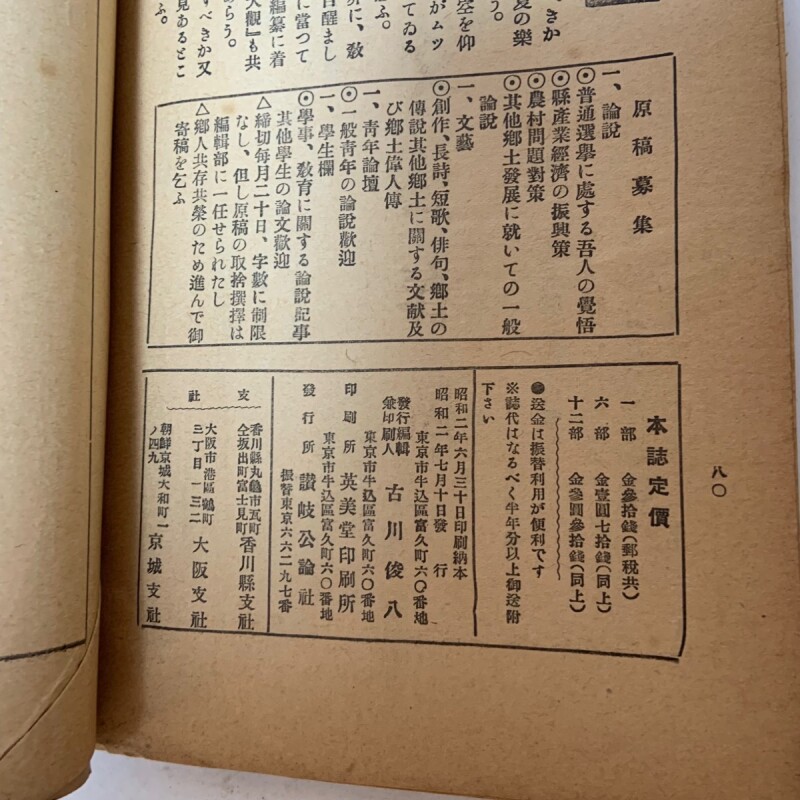 さか
夏の樂
う。
空を仰
がムツ
てゐる
ふ。
所に、敎
自醒まし
に當つて
編纂に着
大觀』も共
あらう。
すべきか又
見あるとこ
ふ。
原稿募集
一、論說
⦿普通選擧に處する吾人の覺悟
⦿縣產業經濟の振興策
⦿農村問題對策
⦿其他鄕土發展に就いての一般
論說
一、文藝
⦿創作、長詩、短歌、俳句、鄕土の
傳說其他鄕土に關する文献及
び鄕土偉人傳
一、靑年論壇
⦿一般靑年の論說歡迎
一、學生欄
⦿學事、敎育に關する論說記事
其他學生の論文歡迎
△締切每月二十日、字數に制限
なし、但し原稿の取捨撰擇は
編輯部に一任せられたし
△鄕人共存共榮のため進んで御
寄稿を乞ふ
八〇
本誌定價
一部 金參拾錢(郵稅共)
六部 金壹圓七拾錢(同上)
十二部 金參圓參拾錢(同上)
●送金は振替利用が便利です
※誌代はなるべく半年分以上御送附
下さい
昭和二年六月三十日印刷納本
昭和二年七月十日發行
東京市牛込區富久町六〇番地
發行編輯兼印刷人 古川俊八
東京市牛込區富久町六〇番地
印刷所 英美堂印刷所
東京市牛込區富久町六〇番地
發行所 讃岐公論社
振替東京六六二九七番
支社
香川縣丸龜市瓦町
仝坂出町富士見町 香川縣支社
大阪市港區鶴町
三丁目一三二 大阪支社
朝鮮京城大和町一
ノ四九 京城支社